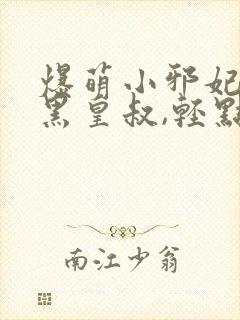 爆萌小邪妃
黑皇叔,輕點
南江少翁